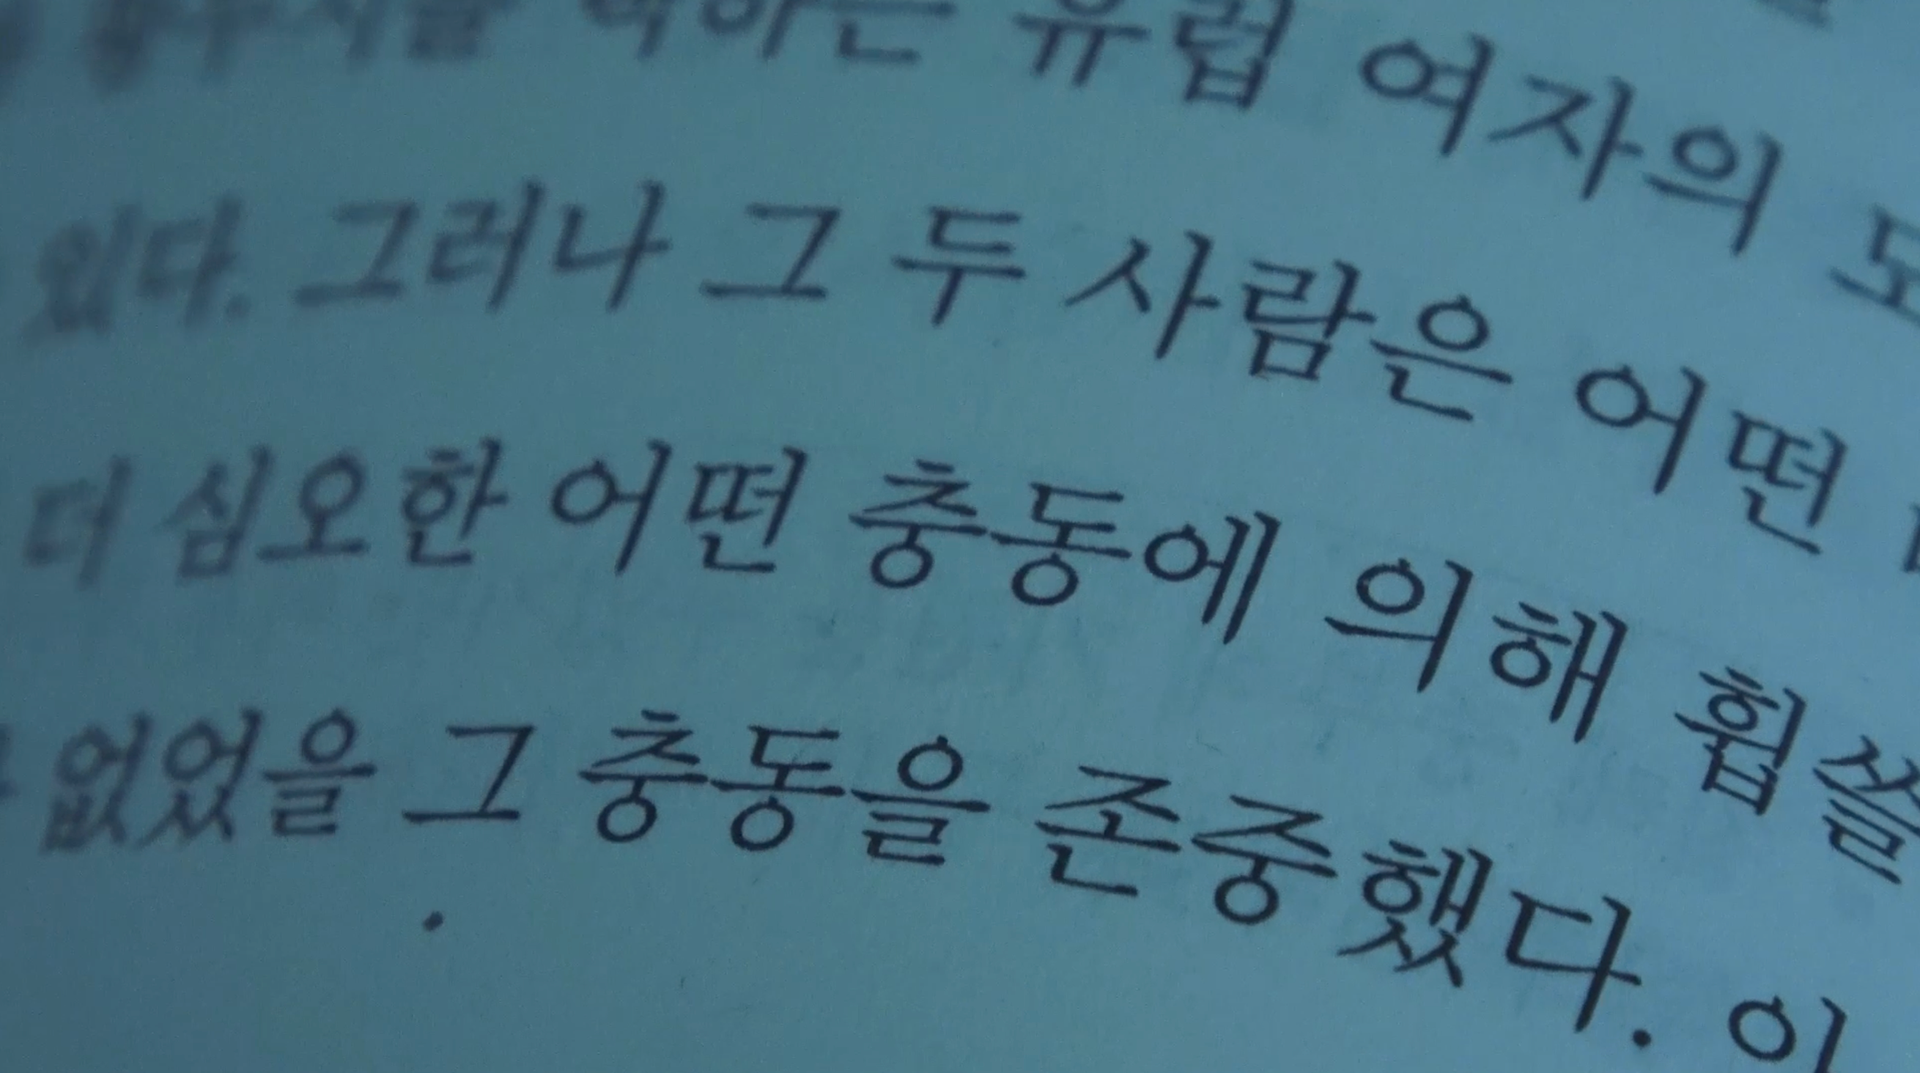 유럽 여자의
있다. 그러나 그 두 사람은 어떤
더 심오한 어떤 충동에 의해 휩쓸
없었을 그 충동을 존중했다. 이